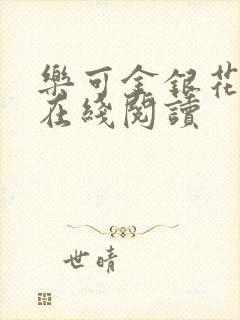 樂可金銀花
在綫閱讀
世晴